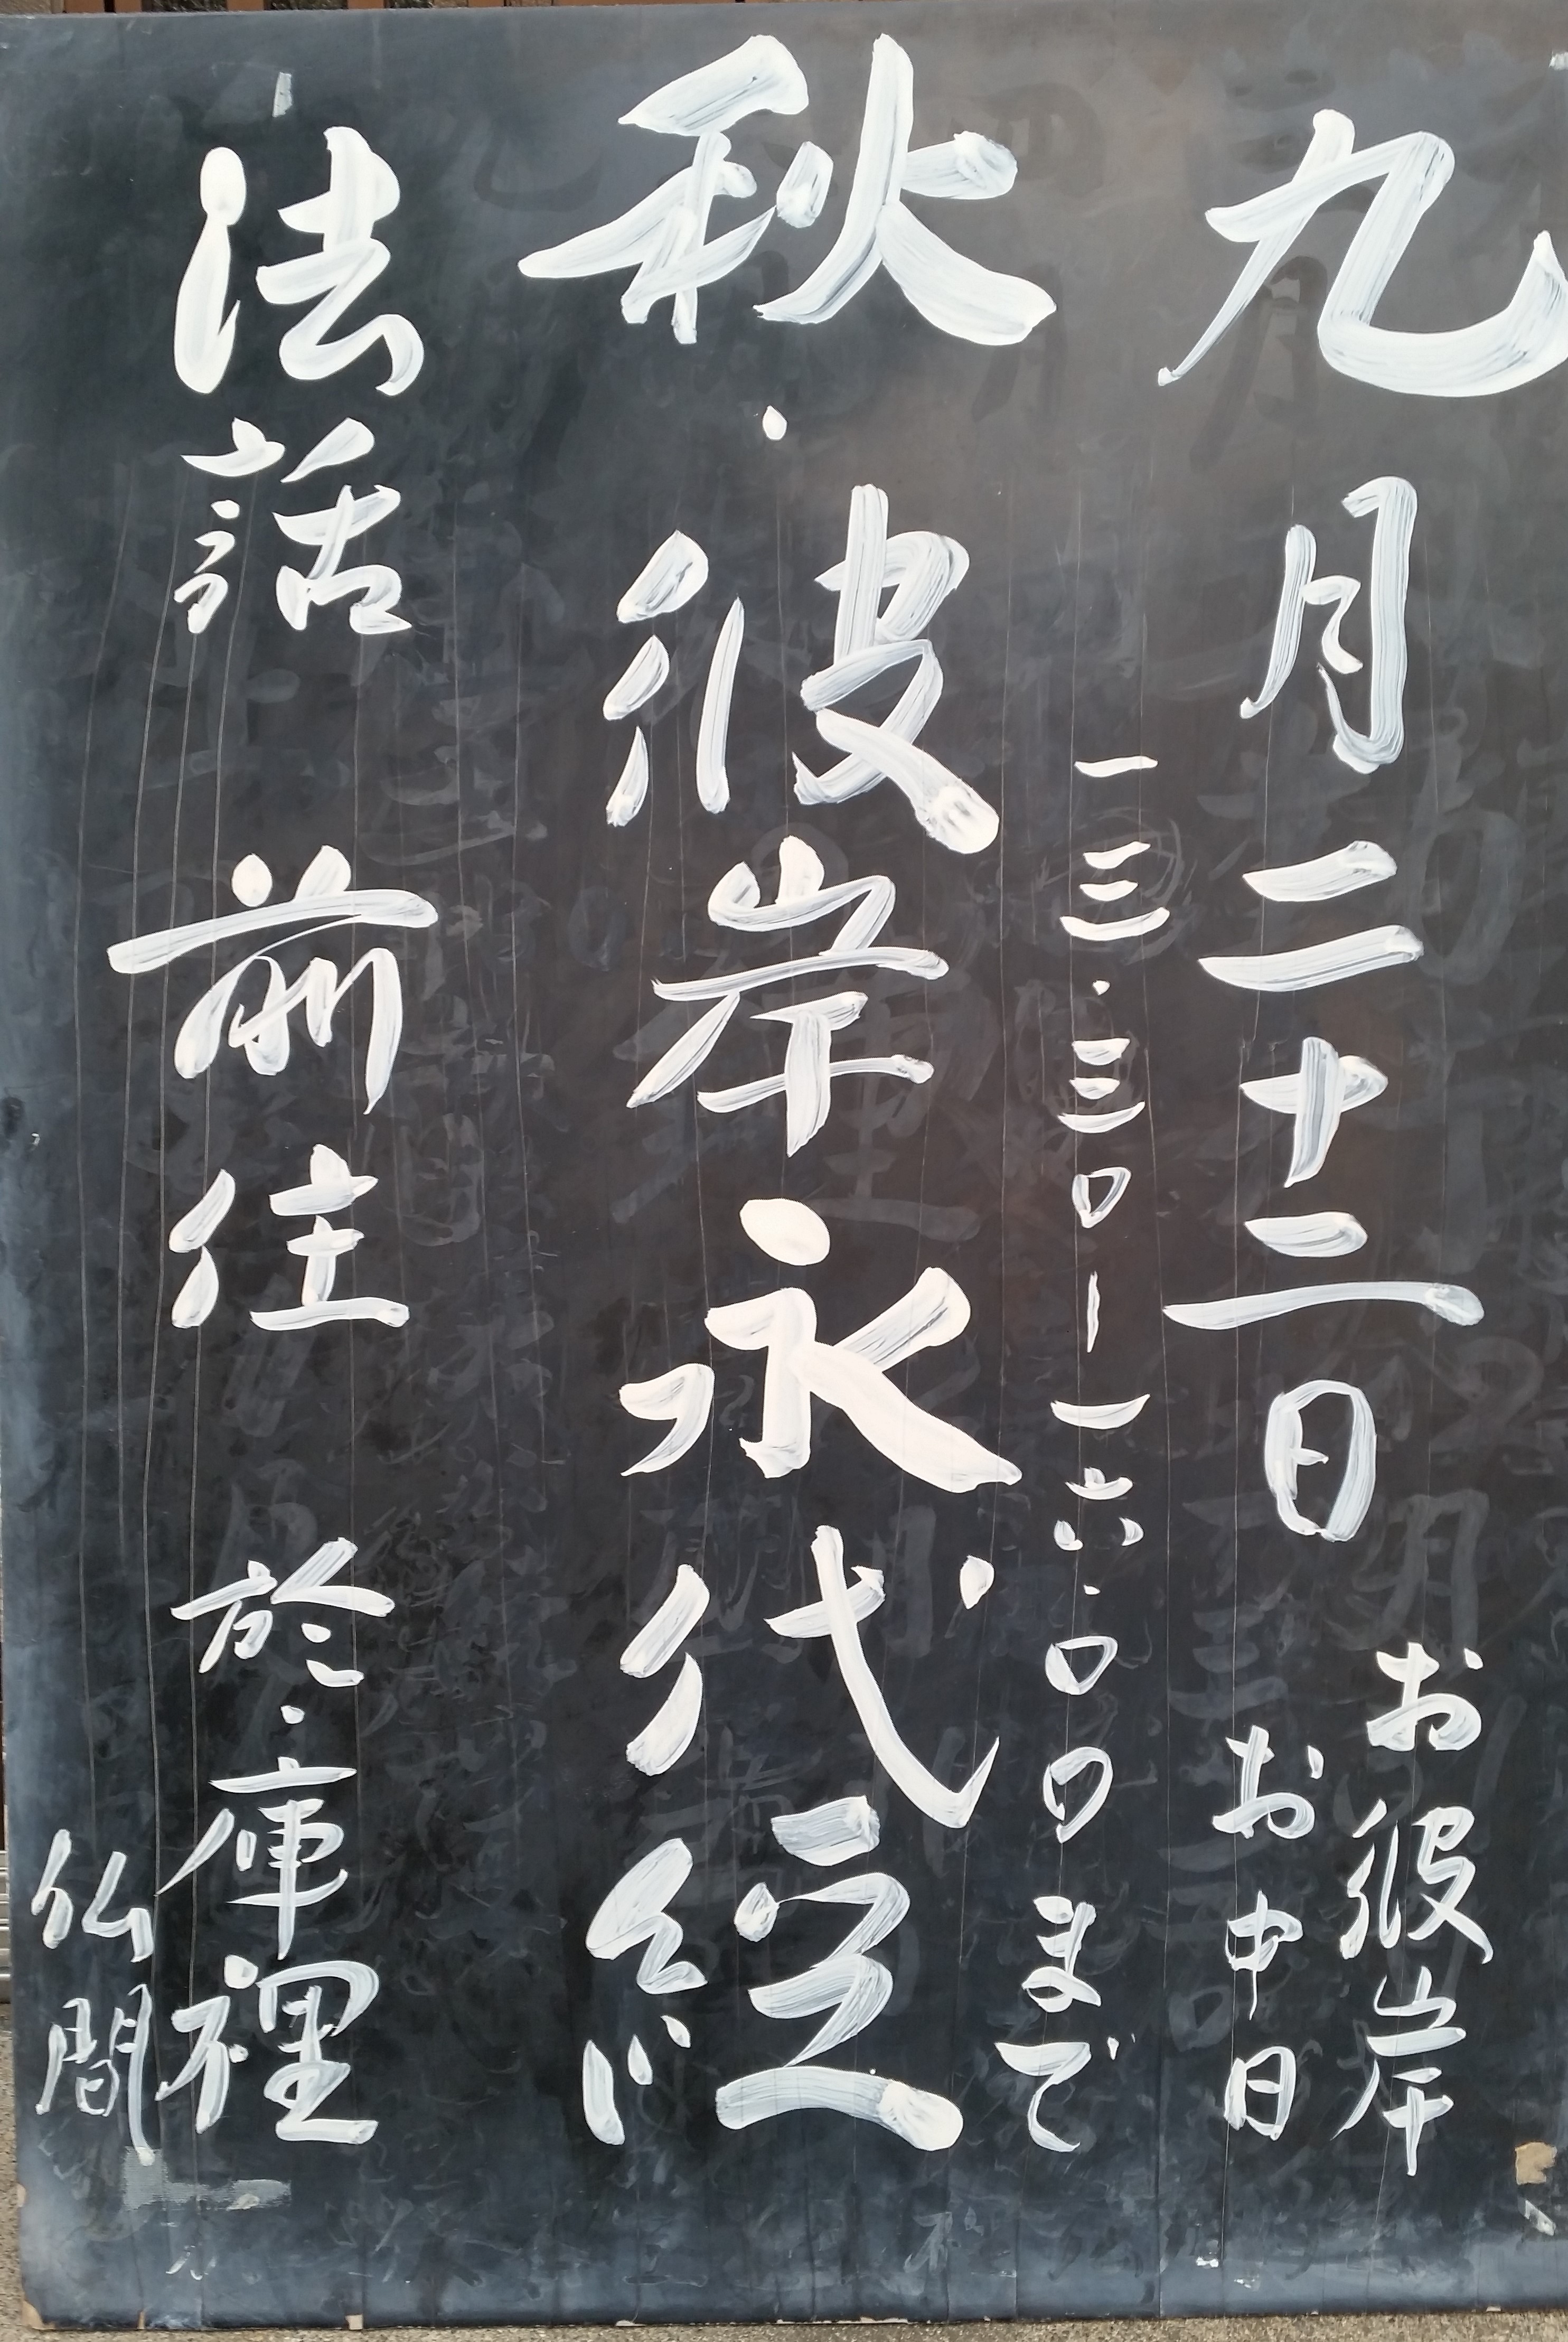 九月二十二日
お彼岸
お中日
一三・三〇ー一六・〇〇まで
秋・彼岸永代経
法話 前住 於・庫裡
仏間